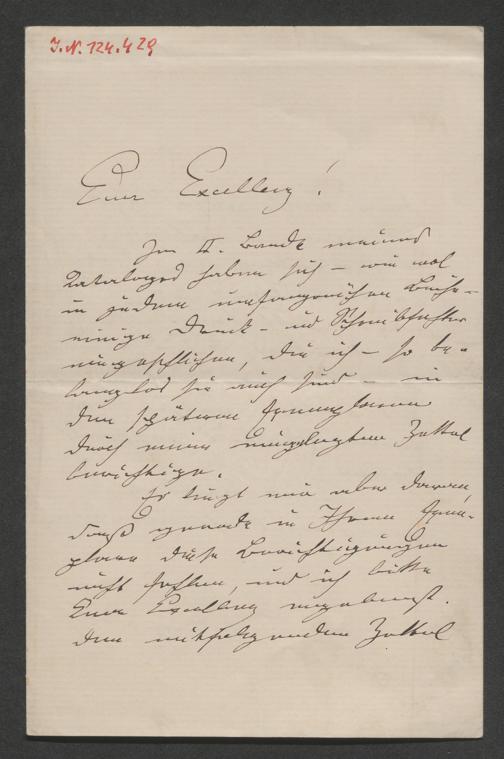 J.N. 124.429
Euer Excellenz!
Im II. Bande meines
Kataloges haben sich – wie wol
in jedem umfangreichen Buche –
einige Druck- und Schreibfehler
eingeschlichen, die ich – so be-
langlos sie auch sind – in
den späteren Exemplaren
durch einen eingelegten Zettel
berichtige.
Es liegt mir aber daran
daß gerade in Ihrem Exem-
plare diese Berichtigungen
nicht fehlen, und ich bitte
Euer Excellenz ergebenst.
den mitfolgenden Zettel